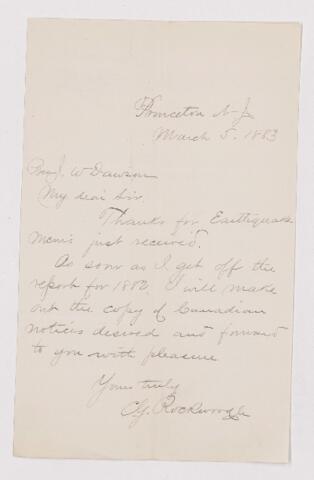 Princeton N-J-
March 5. 1883
Prof. J. W Dawson
My dear Sir.
Thanks for Earthquake
Mems just received.
As soon as I get off the
report for 1882 I will make
out the copy of Canadian
notices desired and forward
to you with pleasure
Yours truly
C.G. Rockwood Jr